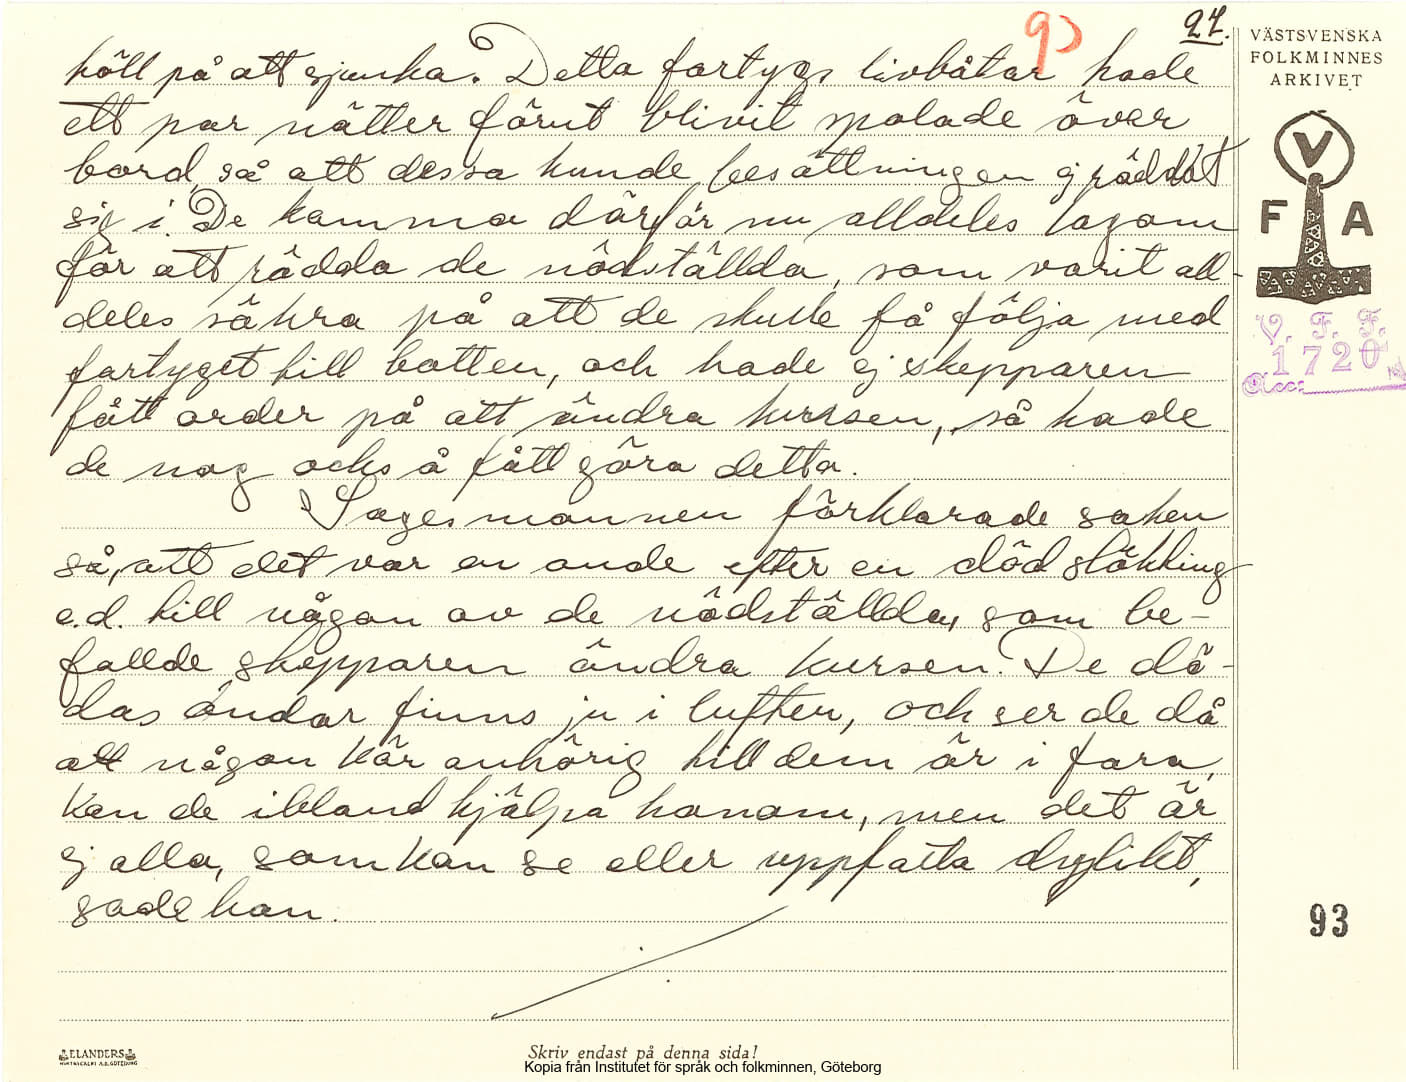 93
27.
höll på att sjunka. Detta fartygs livbåtar hade
ett par nätter förut blivit spolade över
bord, så att dessa kunde besättningen ej räddat
sig i. De komma därför nu alldeles lagom
för att rädda de nödställda, som varit all-
deles säkra på att de skulle få följa med
fartyget till botten, och hade ej skepparen
fått order på att ändra kursen, så hade
de nog också fått göra detta.
Sagesmannen förklarade saken
så, att det var en ande efter en död släkting
e.d. till någon av de nödställda, som be-
fallde skepparen ändra kursen. De dö-
das andar finns ju i luften, och ser de då
att någon kär anhörig till dem är i fara,
kan de ibland hjälpa honom, men det är
ej alla, som kan se eller uppfatta dylikt,
sade han.
VÄSTSVENSKA
FOLKMINNES
ARKIVET
V
F A
V. F. F.
1720
Acc:
93
ELANDERS
Skriv endast på denna sida!
Kopia från Institutet för språk och folkminnen, Göteborg